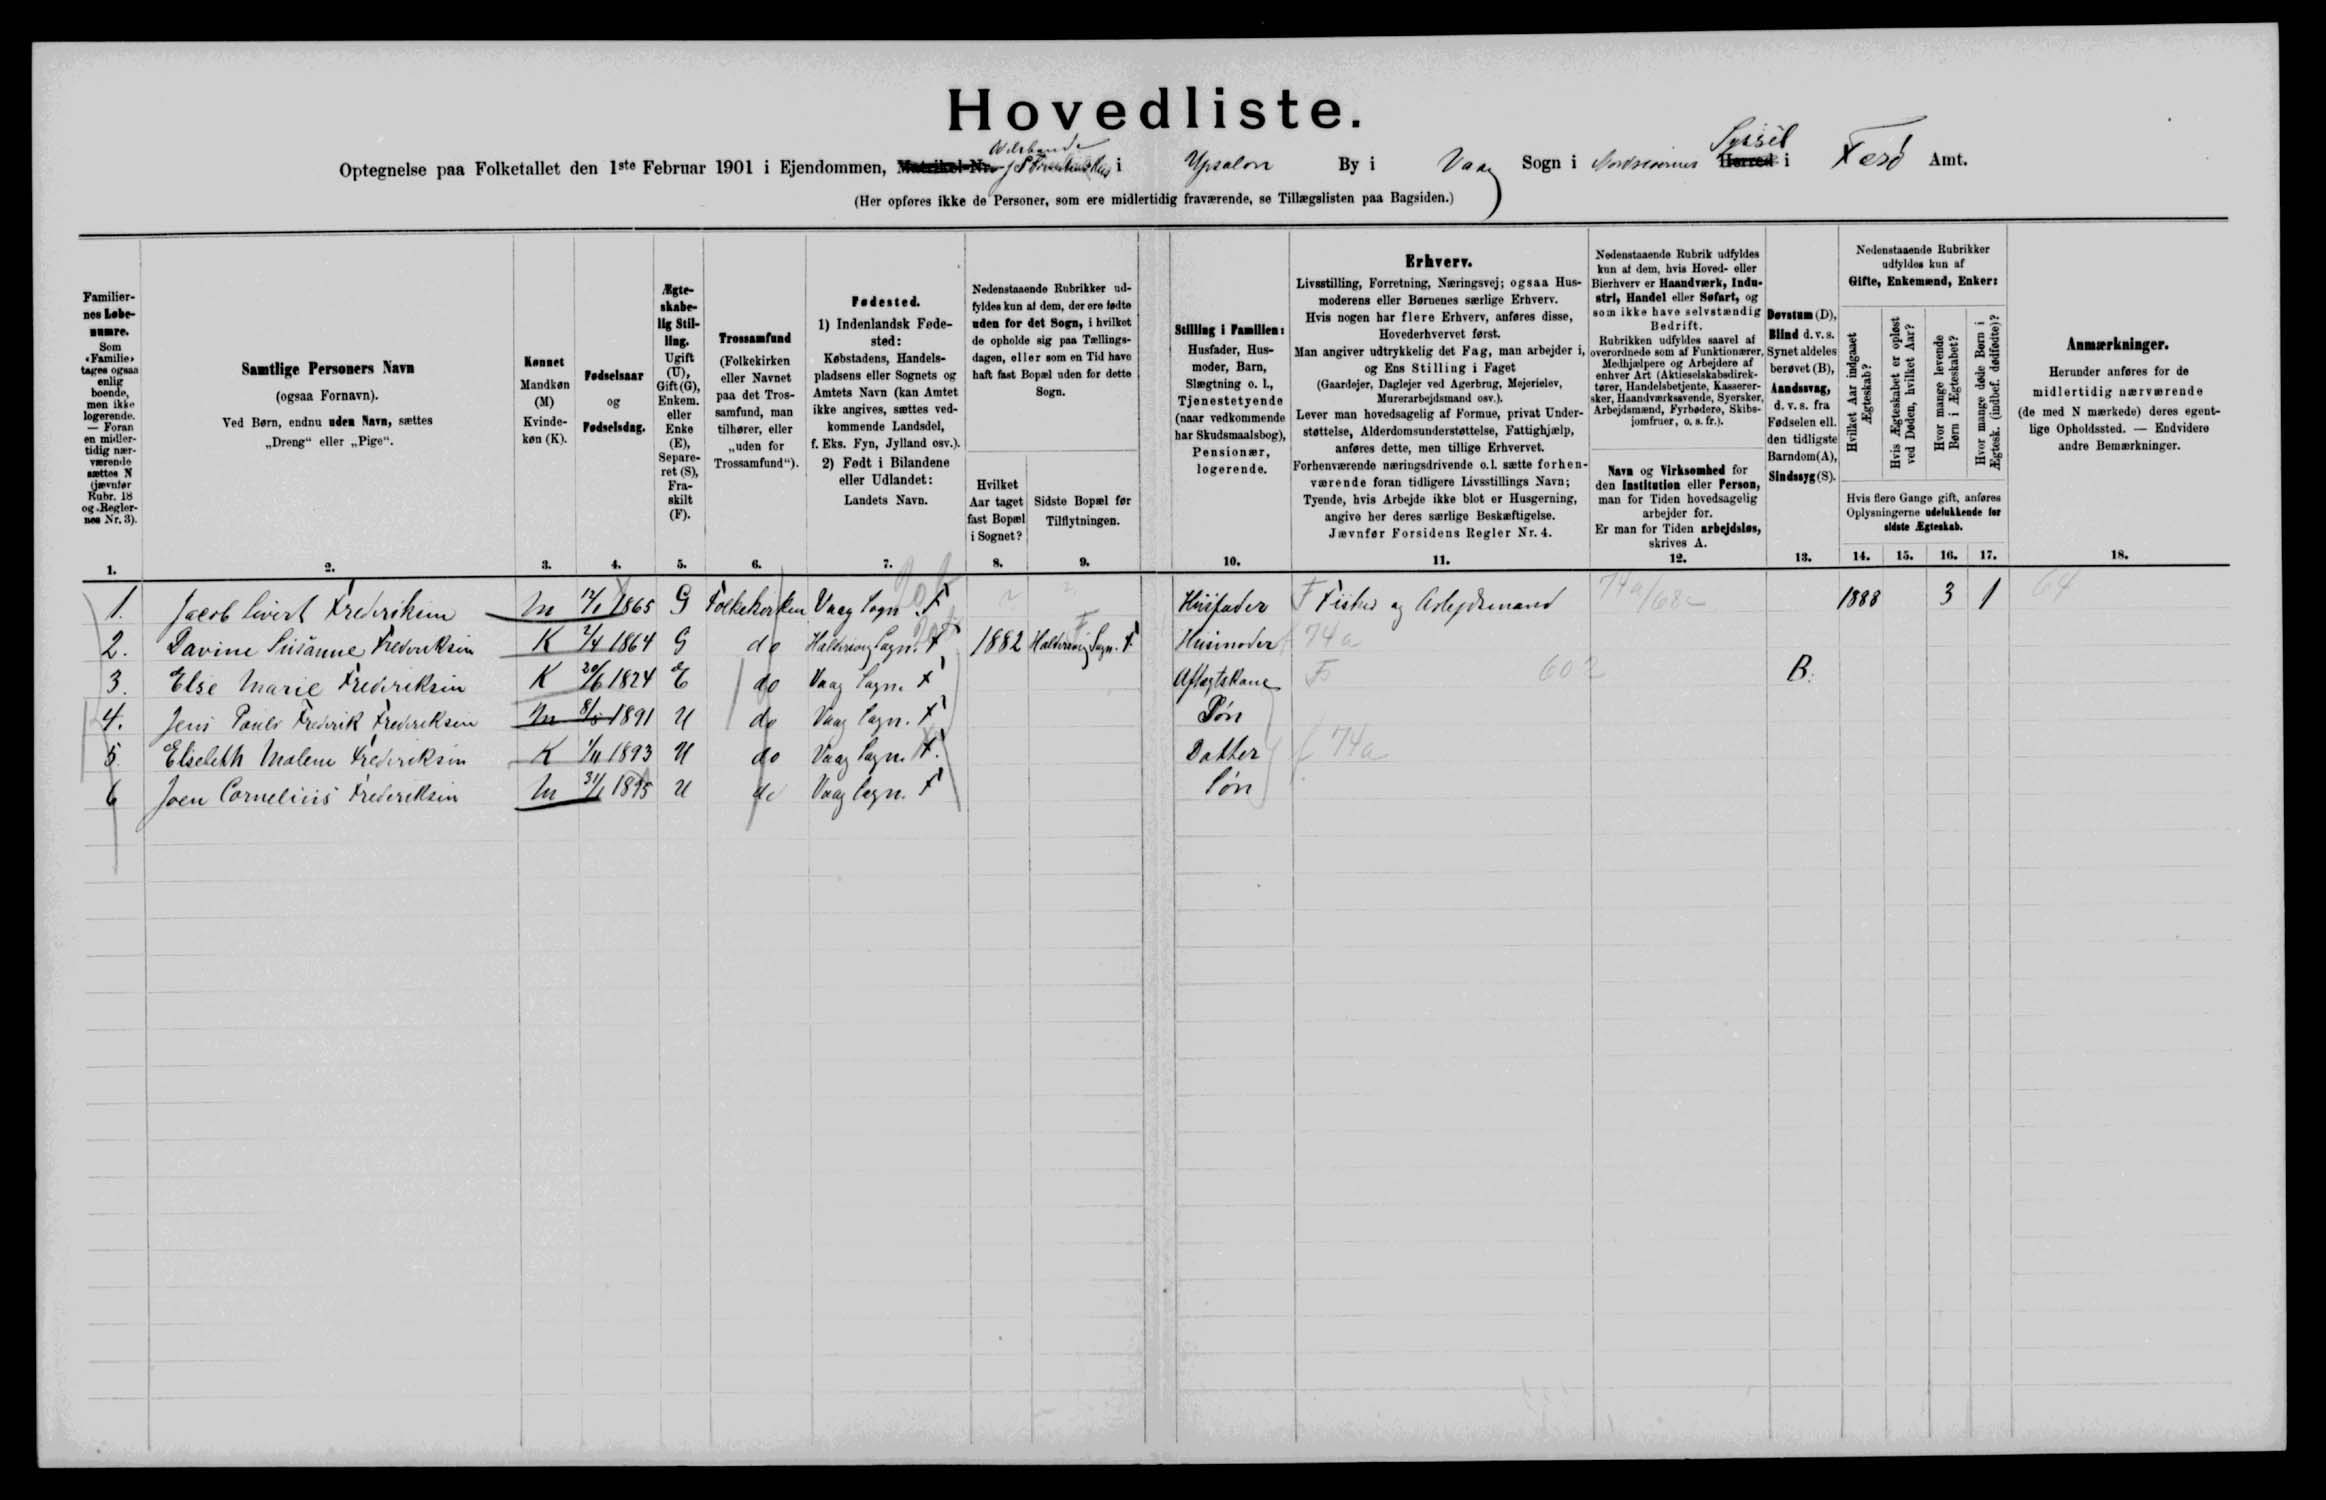 Hovedliste.
Optegnelse paa Folketallet den 1ste Februar 1901 i Ejendommen, Matrikel-Nr. i Ypsalon By i Vaag Sogn i Norderøernes Herred Syssel i Færø Amt.
(Her opføres ikke de Personer, som ere midlertidig fraværende, se Tillægslisten paa Bagsiden.)
Familiernes Løbenumre.
Som «Familie» tages ogsaa enlig boende, men ikke logerende. — Foran en midlertidig nærværende sættes N (jævnfør Rubr. 18 og Reglernes Nr. 3).
Samtlige Personers Navn
(ogsaa Fornavn).
Ved Børn, endnu uden Navn, sættes
„Dreng“ eller „Pige“.
Kønnet
Mandkøn (M)
Kvindekøn (K).
Fødselsaar
og
Fødselsdag.
Ægteskabelig Stilling.
Ugift (U), Gift (G), Enkem. eller Enke (E), Separeret (S), Fraskilt (F).
Trossamfund
(Folkekirken eller Navnet paa det Trossamfund, man tilhører, eller „uden for Trossamfund“).
Fødested.
1) Indenlandsk Fødested:
Købstadens, Handelspladsens eller Sognets og Amtets Navn (kan Amtet ikke angives, sættes vedkommende Landsdel, f. Eks. Fyn, Jylland osv.).
2) Født i Bilandene eller Udlandet:
Landets Navn.
Nedenstaaende Rubrikker udfyldes kun af dem, der ere fødte uden for det Sogn, i hvilket de opholde sig paa Tællingsdagen, eller som en Tid have haft fast Bopæl uden for dette Sogn.
Hvilket Aar taget fast Bopæl i Sognet?
Sidste Bopæl før Tilflytningen.
Stilling i Familien:
Husfader, Husmoder, Barn, Slægtning o. l., Tjenestetyende (naar vedkommende har Skudsmaalsbog), Pensionær, logerende.
Erhverv.
Livsstilling, Forretning, Næringsvej; ogsaa Husmoderens eller Børnenes særlige Erhverv.
Hvis nogen har flere Erhverv, anføres disse, Hovederhvervet først.
Man angiver udtrykkelig det Fag, man arbejder i, og Ens Stilling i Faget
(Gaardejer, Daglejer ved Agerbrug, Mejerielev, Murerarbejdsmand osv.).
Lever man hovedsagelig af Formue, privat Understøttelse, Alderdomsunderstøttelse, Fattighjælp, anføres dette, men tillige Erhvervet.
Forhenværende næringsdrivende o. l. sætte forhenværende foran tidligere Livsstillings Navn;
Tyende, hvis Arbejde ikke blot er Husgerning, angive her deres særlige Beskæftigelse.
Jævnfør Forsidens Regler Nr. 4.
Nedenstaaende Rubrik udfyldes kun af dem, hvis Hoved- eller Bierhverv er Haandværk, Industri, Handel eller Søfart, og som ikke have selvstændig Bedrift.
Rubrikken udfyldes saavel af overordnede som af Funktionærer, Medhjælpere og Arbejdere af enhver Art (Aktieselskabsdirektører, Handelsbetjente, Kasserersker, Haandværkssvende, Syersker, Arbejdsmænd, Fyrbødere, Skibsjomfruer, o. s. fr.).
Navn og Virksomhed for den Institution eller Person, man for Tiden hovedsagelig arbejder for.
Er man for Tiden arbejdsløs, skrives A.
Døvstum (D),
Blind d. v. s. Synet aldeles berøvet (B),
Aandssvag, d. v. s. fra Fødselen ell. den tidligste Barndom (A),
Sindssyg (S).
Nedenstaaende Rubrikker udfyldes kun af
Gifte, Enkemænd, Enker:
Hvilket Aar indgaaet Ægteskab?
Hvis Ægteskabet er opløst ved Døden, hvilket Aar?
Hvor mange levende Børn i Ægteskabet?
Hvor mange døde Børn i Ægtesk. (indbef. dødfødte)?
Hvis flere Gange gift, anføres Oplysningerne udelukkende for sidste Ægteskab.
Anmærkninger.
Herunder anføres for de midlertidig nærværende (de med N mærkede) deres egentlige Opholdssted. — Endvidere andre Bemærkninger.
1. 2. 3. 4. 5. 6. 7. 8. 9. 10. 11. 12. 13. 14. 15. 16. 17. 18.
1. Jacob Sivert Frederiksen M 12/1 1865 G Folkekirken Vaag Sogn. F Husfader F Fisker og Arbejdsmand 74a/68c 1888 3 1 64
2. Davine Susanne Frederiksen K 2/4 1864 G do Haldersvig Sogn. F 1882 Haldersvig Sogn. F Husmoder 74a
3. Else Marie Frederiksen K 20/6 1824 E do Vaag Sogn. F Aftægtskone F 602 B.
4. Jens Poul Frederik Frederiksen M 8/5 1891 U do Vaag Sogn. F Søn
5. Elsebeth Malene Frederiksen K 1/11 1893 U do Vaag Sogn. F Datter f 74a
6 Joen Cornelius Frederiksen M 31/1 1895 U do Vaag Sogn. F Søn